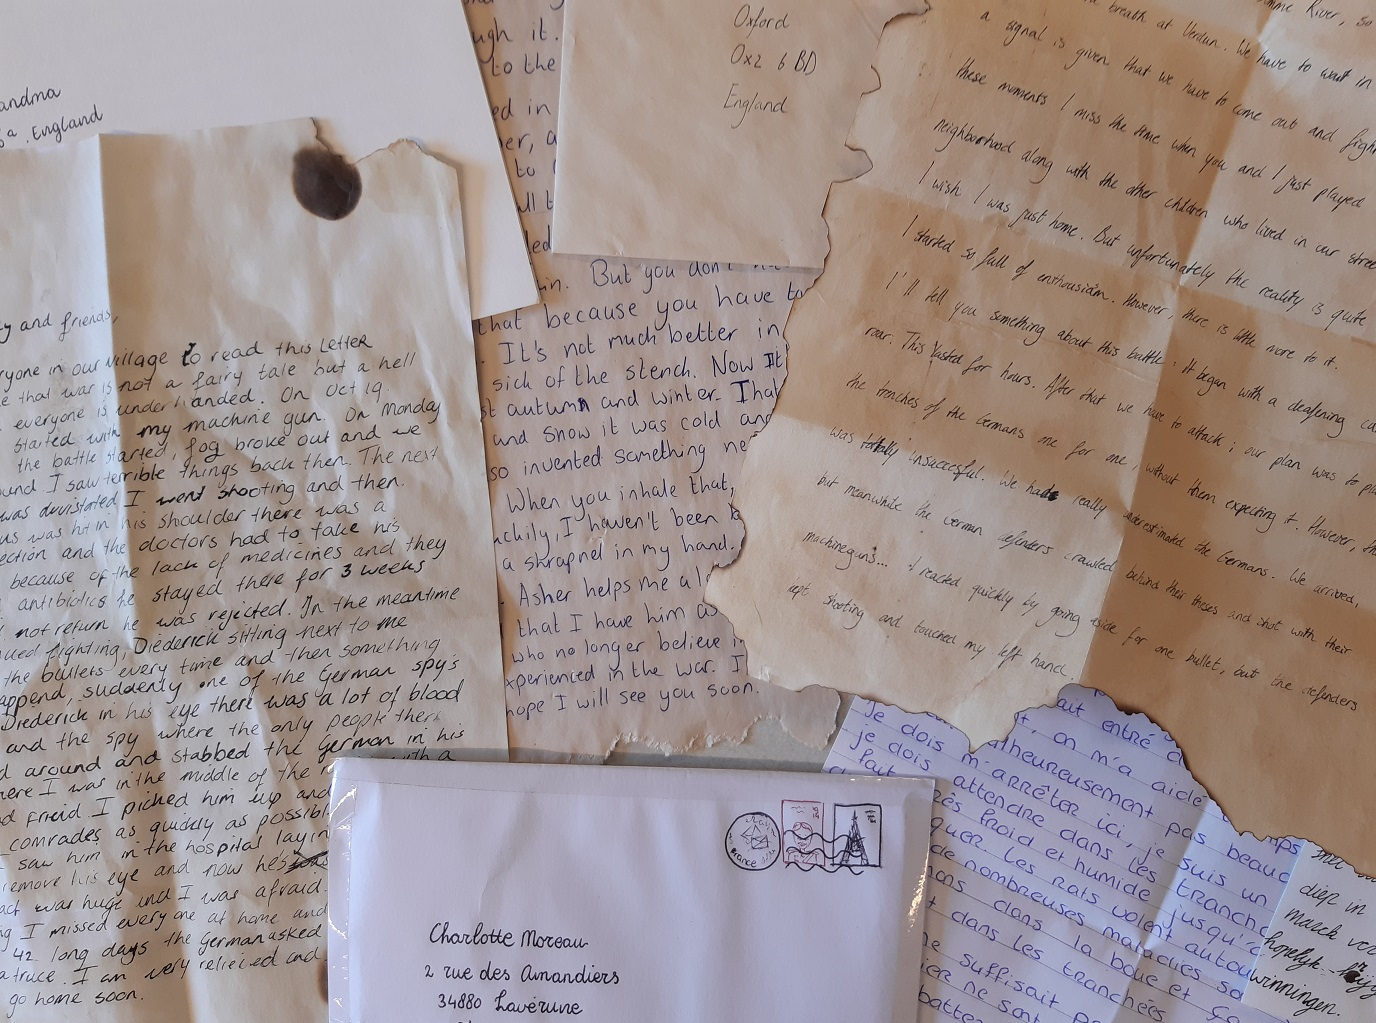 andma
England
ty and friends,
ryone in our village to read this letter
e that war is not a fairy tale but a hell
everyone is underhanded. On Oct 19
started with my machine gun. On Monday
the battle started, fog broke out and we
ound I saw terrible things back then. The next
was devistated I went shooting and then.
us was hit in his shoulder there was a
ection and the doctors had to take his
because of the lack of medicines and they
antibiotics he stayed there for 3 weeks
not return he was rejected. In the meantime
ued fighting, Diederick sitting next to me
the bullets every time and then something
append, suddenly one of the German spy's
Diederick in his eye there was a lot of blood
and the spy where the only people there
d around and stabbed the German in his
here I was in the middle of the
nd friend I picked him up and
comrades as quickly as possibl
saw him in the hospital layin
remove his eye and now he's
act was huge and I was afraid.
g I missed everyone at home and
42 long days the German asked
a truce. I am very relieved and
go home soon.
ugh it.
to the
ed in
er, a
to
ll t
led
in. But you don't
that because you have to
. It's not much better in
sick of the stench. Now It
st autumn and winter. That
und snow it was cold and
so invented something ne
When you inhale that,
uckily, I haven't been
a shrapnel in my hand.
. Asher helps me a lo
that I have him as
who no longer believe i
xperienced in the war. I
hope I will see you soon.
Oxford
Ox2 6 BD
England
River, so
breath at Verdun. We have to wait in
a signal is given that we have to come out and figh
these moments I miss the time when you and I just played
neighborhood along with the other children who lived in our stree
I wish I was just home. But unfortunately the reality is quite
I started so full of enthousiasm. However, there is little more to it.
I'll tell you something about this battle. It began with a deafening ca
roar. This lasted for hours. After that we have to attack; our plan was to pl
the trenches of the Germans me for one, without them expecting it. However, th
was totally insuccesful. We had really underestimated the Germans. We arrived,
but meanwhile the German defenders crawled behind their theses and shot with their
machineguns... I reacted quickly by going aside for one bullet, but the defenders
ept shooting and touched my left hand.
Charlotte Moreau
2 rue des Amandiers
34880 Lavérune
ait entré
Je dois
atheureusement pas beauc
, on m'a aidé
mps
je dois m'arrêter ici, je suis un
fait
attendre dans les tranch
rès froid et humide jusqu'
quer. Les rats volent autou
de nombreuses maladies so
ans dans la boue et ça
t dans les tranchées
ne suffisait p
ier ne sont
batte
diep in
maeck ver
hopelijk
winningen.